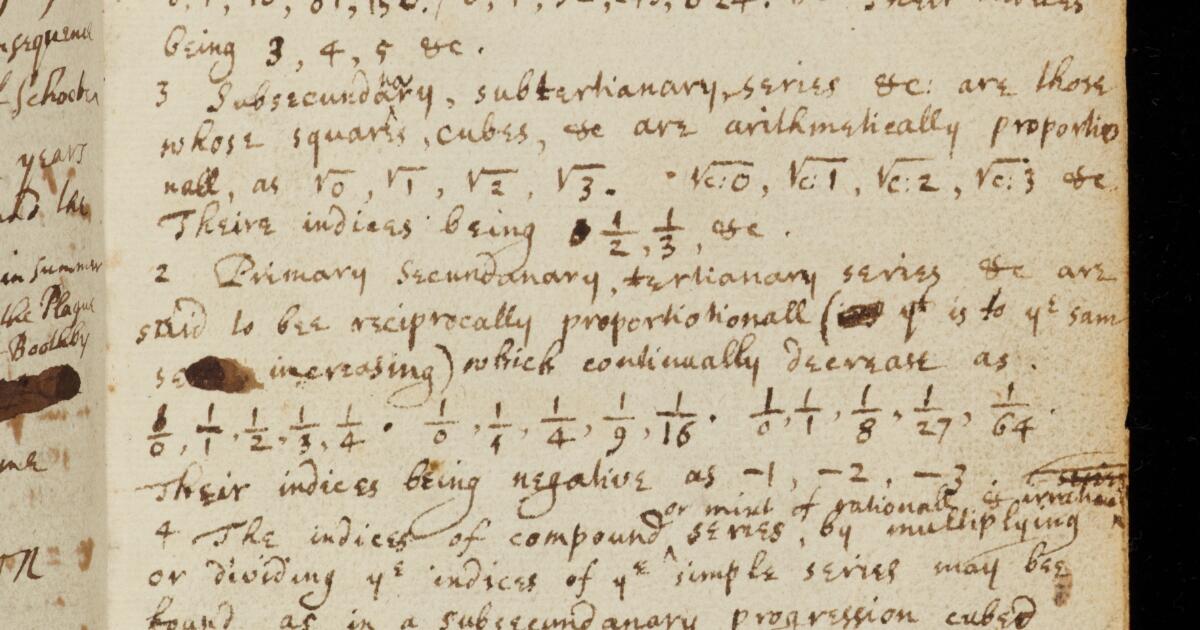 being 3, 4, 5 &c.
3 Subsecundanary, subtertianary, series &c: are those
whose squares, cubes, &c are arithmetically proportio
nall, as √0, √1, √2, √3. √c:0, √c:1, √c:2, √c:3 &c
Theire indices being 1/2, 1/3, &c.
2 Primary Secundanary, tertianary series &c are
said to bee reciprocally proportiotionall (yt is to ye sam
increasing) which continually decrease as.
1/0, 1/1, 1/2, 1/3, 1/4. 1/0, 1/1, 1/4, 1/9, 1/16. 1/0, 1/1, 1/8, 1/27, 1/64.
Their indices being negative as −1, −2, −3
or mixt of rationall & irrationall
4 The indices of compound series, by multiplying
or dividing ye indices of ye simple series may bee
found as in a subsecundanary progression cubed
nsequence
Schooten
years
and the
in summer
the Plague
Boothby